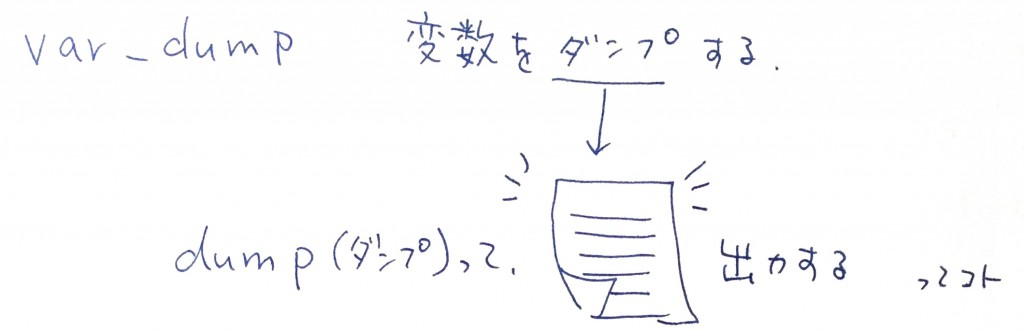 var_dump 変数をダンプする.
dump(ダンプ)って. 出力する ってコト